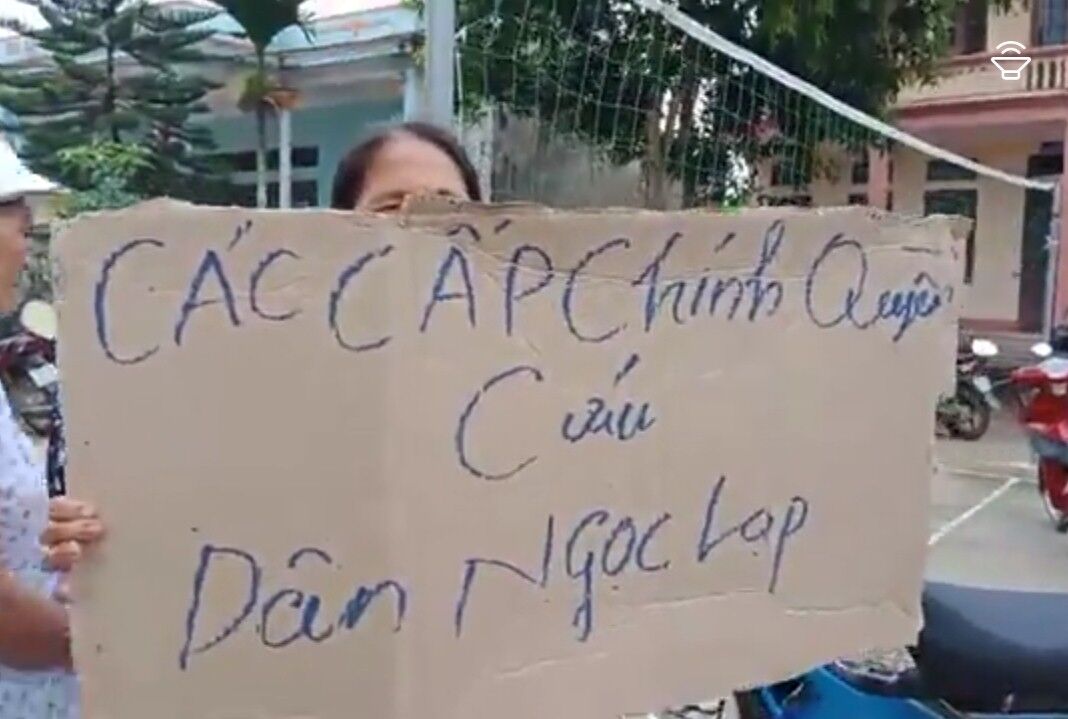 CÁC CẤP Chính Quyền
Cứu
Dân NGỌC Lạp